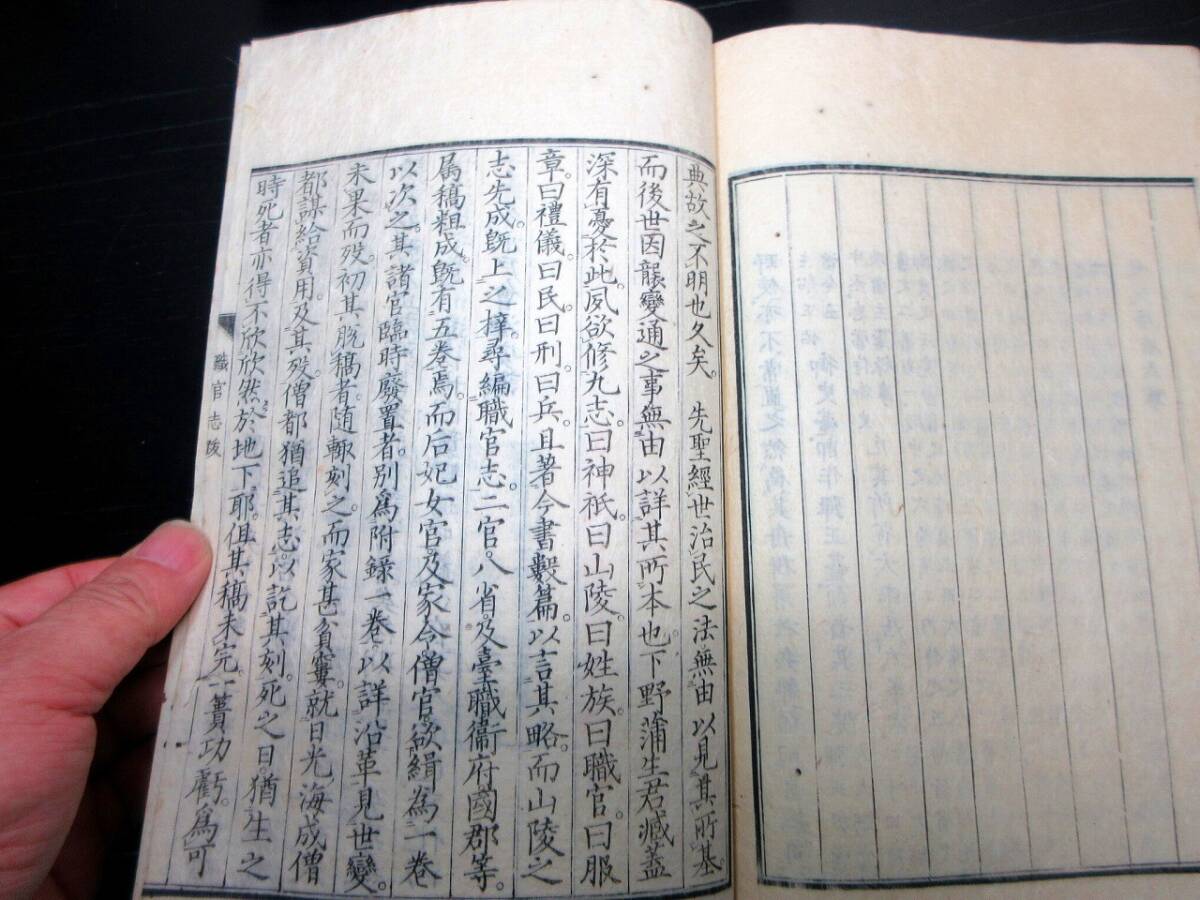 典故之不明也久矣。先聖經世治民之法無由以見其所基
而後世因襲變通之事無由以詳其所本也。下野蒲生君臧蓋
深有憂於此。夙欲修九志。曰神祇。曰山陵。曰姓族。曰職官。曰服
章。曰禮儀。曰民。曰刑。曰兵。且著今書數篇。以言其略。而山陵之
志先成。既上之梓。尋編職官志。二官。八省。及臺職衞府國郡等。
属稿粗成。既有五卷焉。而后妃女官及家令僧官欲緝為一卷
以次之。其諸官臨時廢置者。別爲附錄一卷。以詳沿革見世變。
未果而歿。初其脫稿者。随輙刻之。而家甚貧窶。就日光海成僧
都謀給資用。及其歿。僧都猶追其志。以訖其刻。死之日。猶生之
時。死者亦得不欣欣然於地下耶。但其稿未完。一簣功虧。爲可
職官志跋